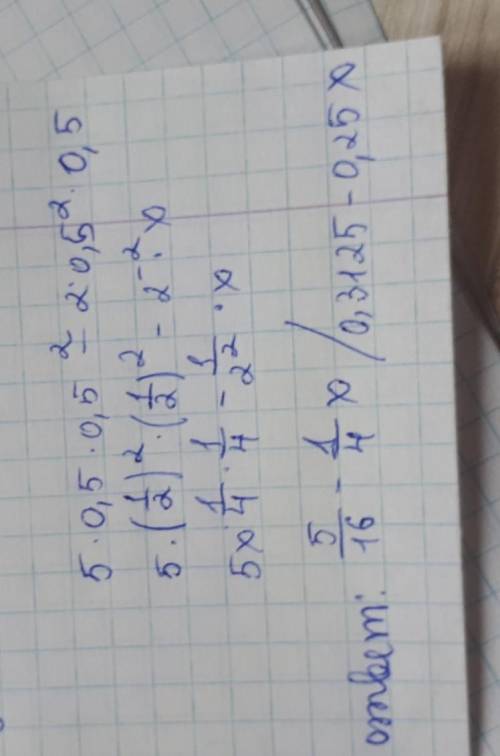 5 · 0,5 · 0,5² - 2 · 0,5² · 0,5
5 · (1/2)² · (1/2)² - 2⁻² · x
5x · 1/4 · 1/4 - 1/2² · x
ответ: 5/16 - 1/4 x / 0,3125 - 0,25 x